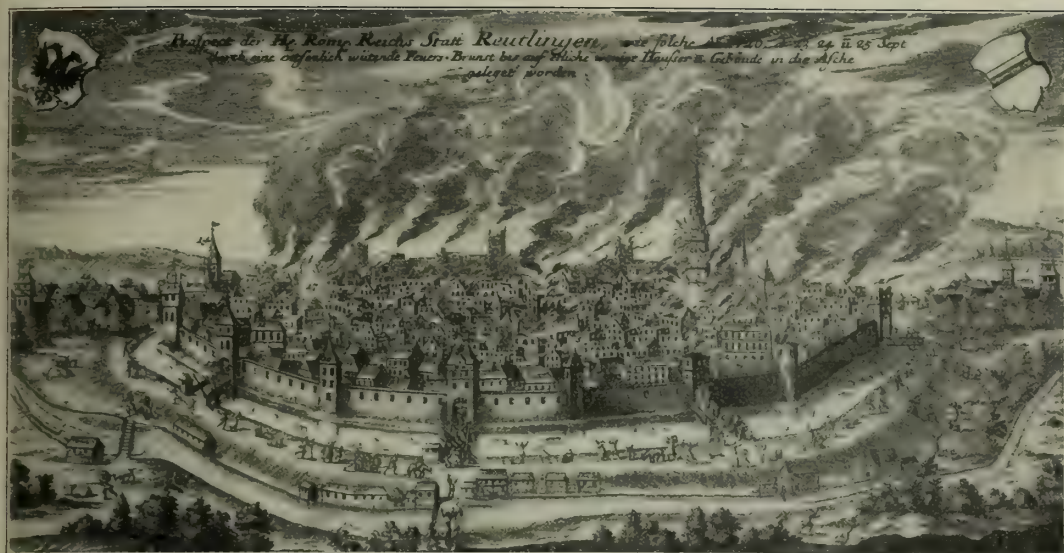 Prospect der Hg. Röm. Reichs Statt Reutlingen, wie solche 23 24 ū 25 Sept
durch eine wütende Feuers-Brunst bis auf etliche wenige Häuser u. Gebäude in die Asche
geleget worden